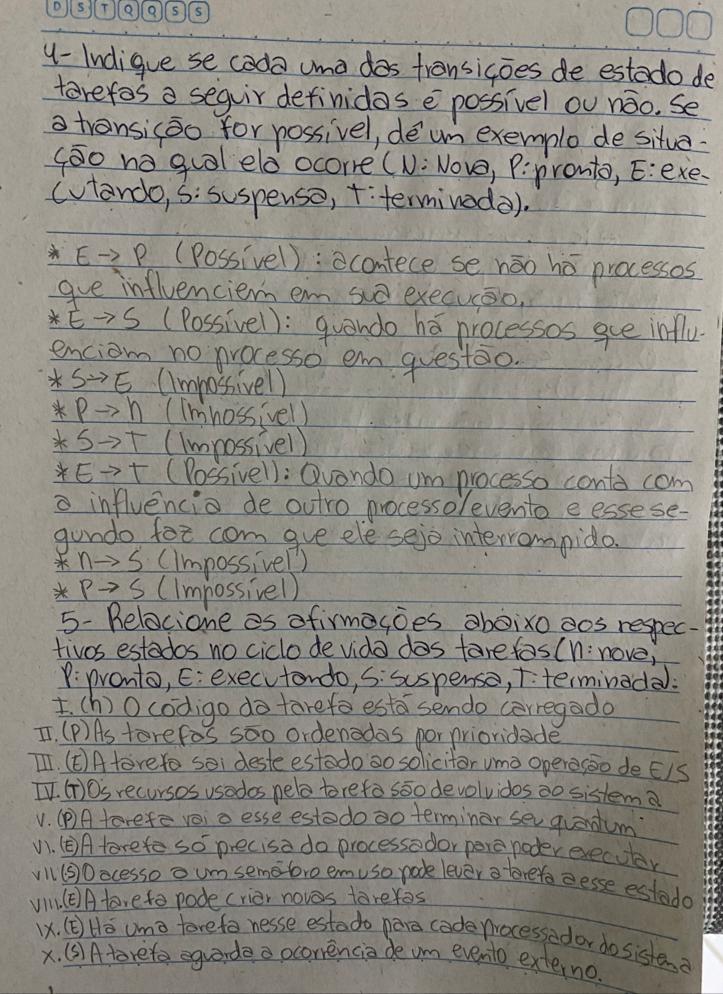 D S T Q Q S S
4- Indique se cada uma das transições de estado de
tarefas a seguir definidas é possível ou não. Se
a transição for possível, dê um exemplo de situa-
ção na qual ela ocorre (N: Nova, P: pronta, E: exe-
cutando, S: suspensa, T: terminada).
* E → P (Possível): acontece se não há processos
que influenciem em sua execução.
* E → S (Possível): quando há processos que influ-
enciam no processo em questão.
* S → E (Impossível)
* P → n (Imhossível)
* S → T (Impossível)
* E → t (Possível): Quando um processo conta com
a influência de outro processo/evento e esse se-
gundo faz com que ele seja interrompido.
* n → S (Impossível)
* P → S (Impossível)
5- Relacione as afirmações abaixo aos respec-
tivos estados no ciclo de vida das tarefas (n: nova,
P: pronta, E: executando, S: suspensa, T: terminada):
I. (n) O código da tarefa está sendo carregado
II. (P) As tarefas são ordenadas por prioridade
III. (E) A tarefa sai deste estado ao solicitar uma operação de E/S
IV. (T) Os recursos usados pela tarefa são devolvidos ao sistema
V. (P) A tarefa vai a esse estado ao terminar seu quantum
VI. (E) A tarefa só precisa do processador para poder executar
VII. (S) O acesso a um semáforo em uso pode levar a tarefa a esse estado
VIII. (E) A tarefa pode criar novas tarefas
IX. (E) Há uma tarefa nesse estado para cada processador do sistema
X. (S) A tarefa aguarda a ocorrência de um evento externo.